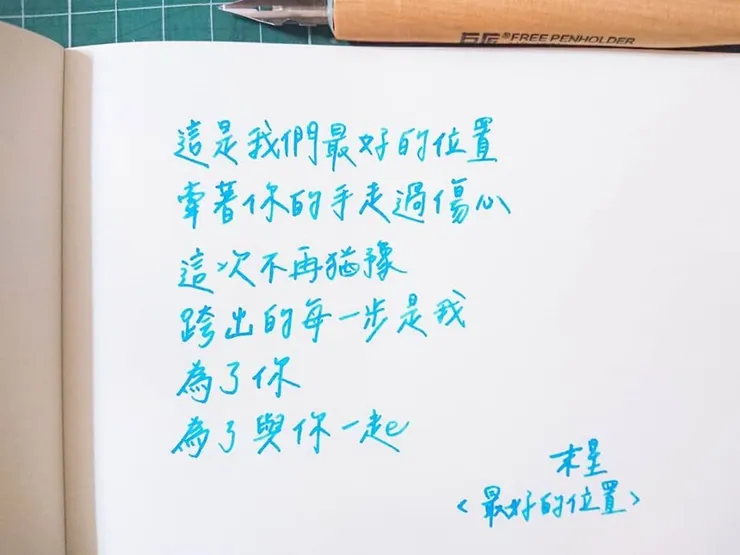 巨匠®FREE PENHOLDER
這是我們最好的位置
牽著你的手走過傷心
這次不再猶豫
跨出的每一步是我
為了你
為了與你一起
末星
<最好的位置>